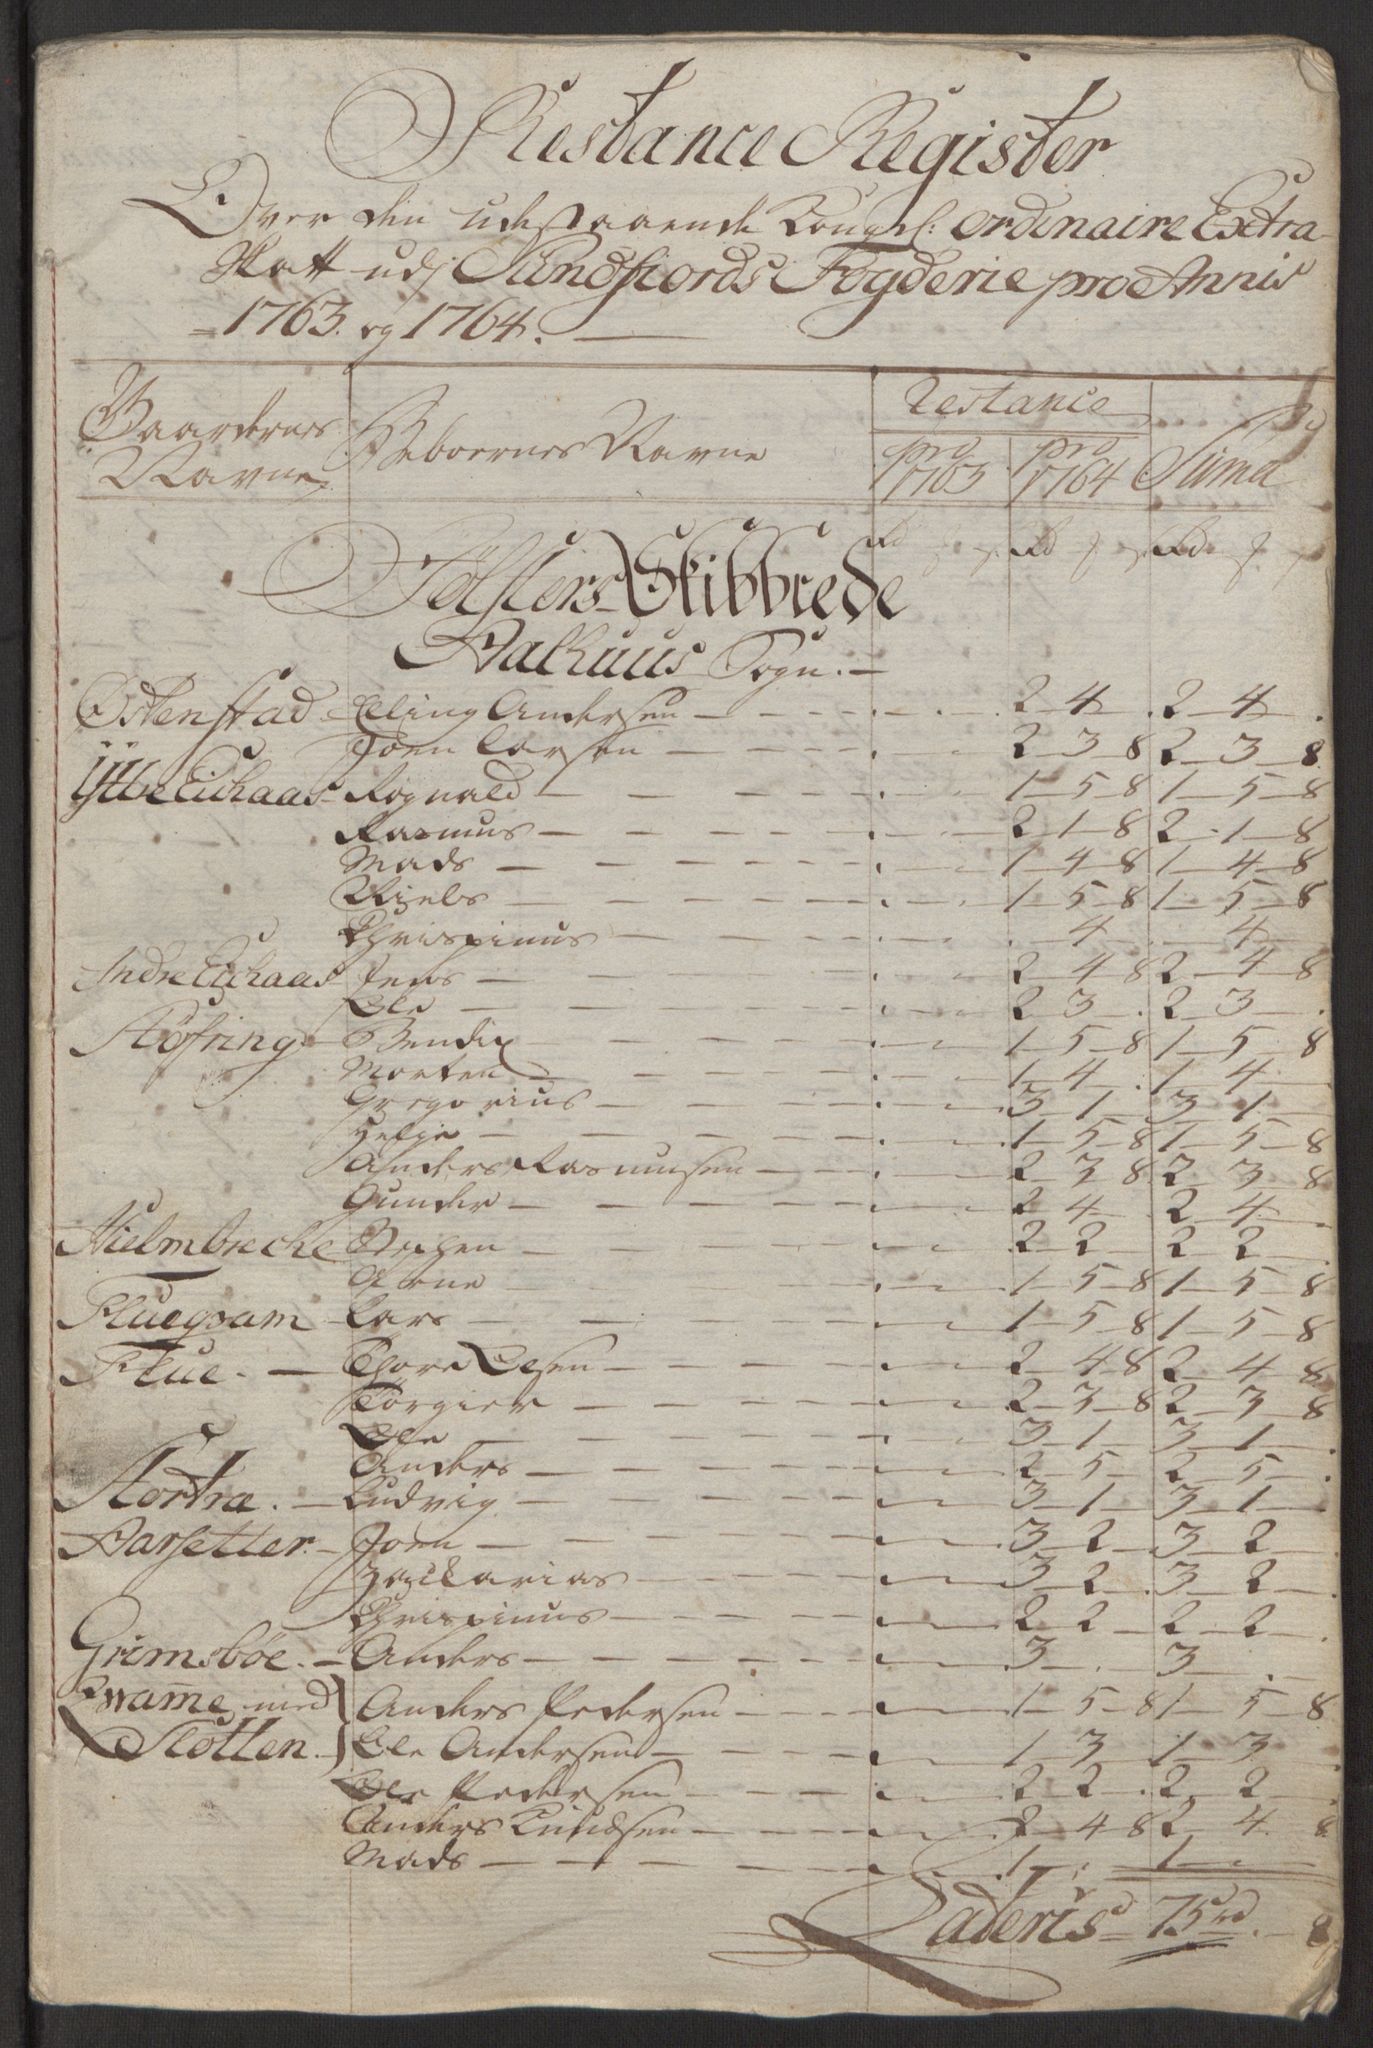 Restance Register
Over den udestaaende Kongel: ordinaire Extra
Skatt udj Sundfiords Fogderie pro Annis
1763. og 1764.
Gaardernes Navne Beboernes Navne Restance pro 1763 pro 1764 Suma
Rd Rd Rd
Jölsters Skibbrede
Aalhuus Sogn.
Ostenstad Elling Andersen 2 4 2 4
Joen Larsen 2 3 8 2 3 8
Ÿttre Eichaas Rognald 1 5 8 1 5 8
Rasmus 2 1 8 2 1 8
Mads 1 4 8 1 4 8
Niels 1 5 8 1 5 8
Chrispinus 4 4
Indre Eichaas Jens 2 4 8 2 4 8
Ole 2 3 2 3
Høfring Bendix 1 5 8 1 5 8
Morten 1 4 1 4
Gregorius 3 1 3 1
Helje 1 5 8 1 5 8
Anders Rasmusen 2 3 8 2 3 8
Gunder 2 4 2 4
Hielmbreche 2 2 2 2
Arne 1 5 8 1 5 8
Fluegvam Lars 1 5 8 1 5 8
Flue. Thore Olsen 2 4 8 2 4 8
Torgier 2 3 8 2 3 8
Ole 3 1 3 1
Anders 2 5 2 5
Stortræ. Ludvig 3 1 3 1
Aarsetter. Joen 3 2 3 2
Zackarias 3 2 3 2
Chrispinus 2 2 2 2
Grimsbøe. Anders 3 3
Qvamme med Anders Pedersen 1 5 8 1 5 8
Slotten. Ole Andersen 1 3 1 3
Ole Pedersen 2 2 2 2
Anders Knudsen 2 4 8 2 4 8
Mads 1 1
Lateris 75 rd 8